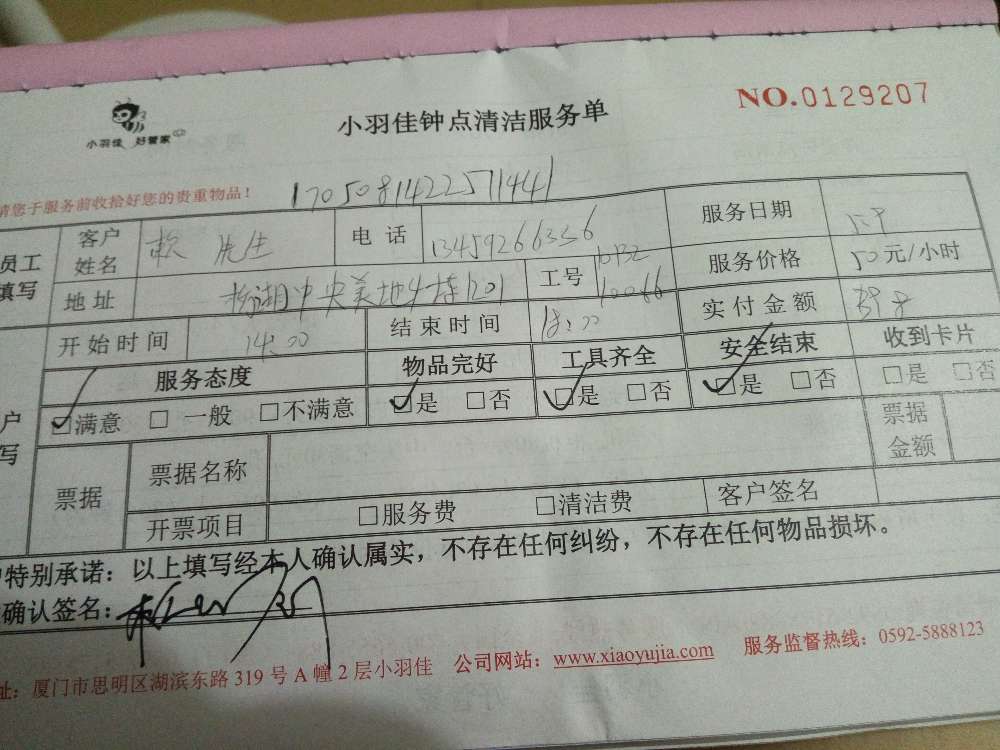 小羽佳 好管家
小羽佳钟点清洁服务单
NO.0129207
请您于服务前收拾好您的贵重物品！
1705081422571441
员工
填写
客户
姓名
先生
电 话
13459266356
服务日期
5.9
地 址
湖中央美地
1201
工号
10066
服务价格
50元/小时
开始时间
14:00
结束时间
18:00
实付金额
398
服务态度
物品完好
工具齐全
安全结束
收到卡片
户
写
☑满意 □ 一般 □不满意
☑是 □否
☑是 □否
☑是 □否
□是 □否
票据
票据名称
票据
金额
开票项目
□服务费 □清洁费
客户签名
户特别承诺：以上填写经本人确认属实，不存在任何纠纷，不存在任何物品损坏。
确认签名：
址：厦门市思明区湖滨东路 319 号 A 幢 2 层小羽佳 公司网站：www.xiaoyujia.com 服务监督热线：0592-5888123